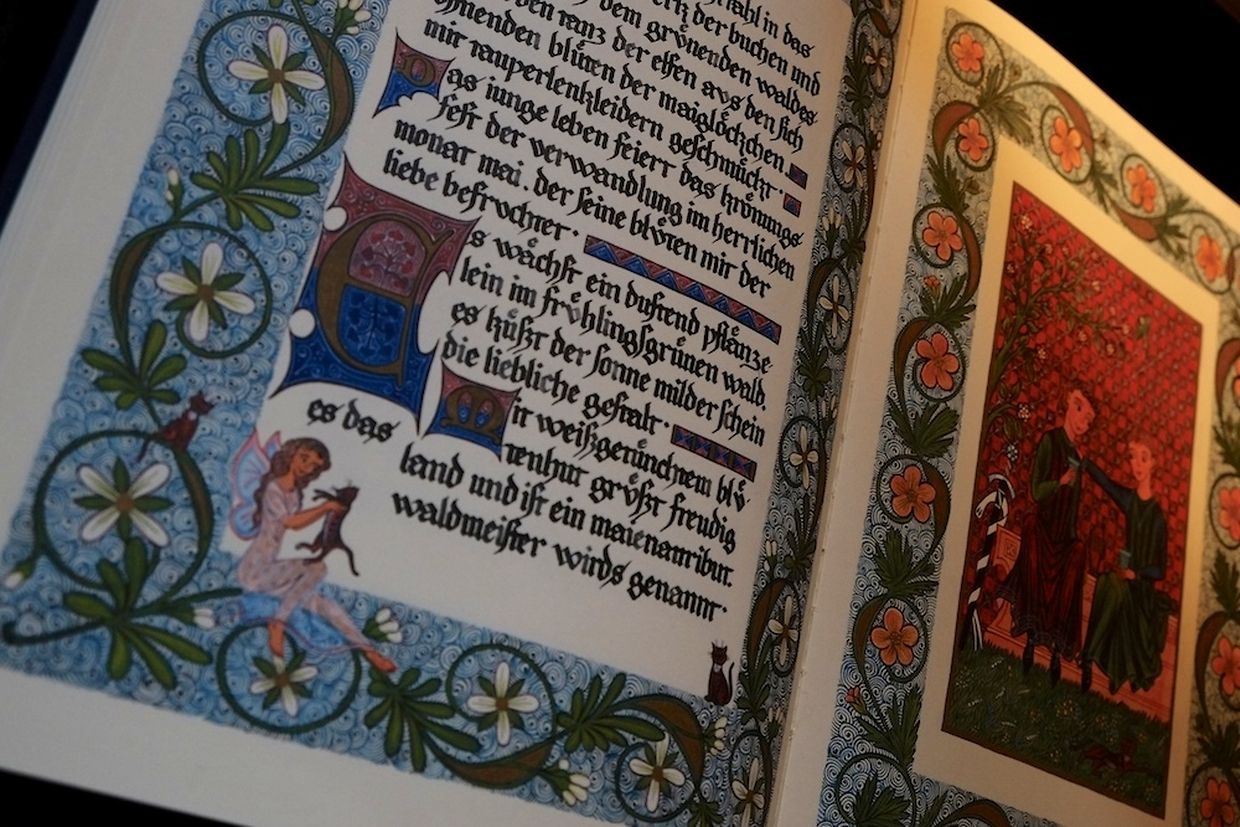 in das
der buchen und
dem grůnenden waldes
den tanz der elfen avs den ſich
öffnenden blůten der maiglöckchen.
mit tauperlenkleidern geſchmůckt·
Das iunge leben feiert das krönungs
feſt der verwandlung im herrlichen
monat mai. der ſeine blv̊ten mit der
liebe befrvchtet·
Es wåchſt ein duftend pflånze
lein im frv̊hlingſgrůnen wald.
es kůßt der ſonne milder ſchein
die liebliche geſtalt·
Mit weißgetůnchtem blv̊
tenhut grv̊ßt freudig
es das land und iſt ein maienattribut.
waldmeiſter wirds genannt·